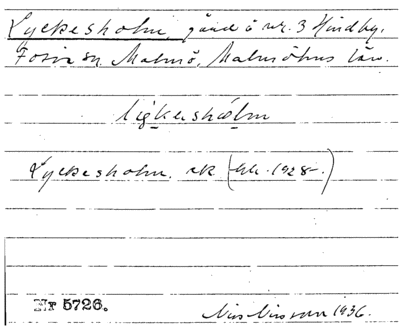 Lyckesholm, gård å nr. 3 Hindby,
Fosie sn. Malmö, Malmöhus län.
Lyckesholm. ek (bl. 1928-.)
Nr 5726.
Nils Nilsson 1936.